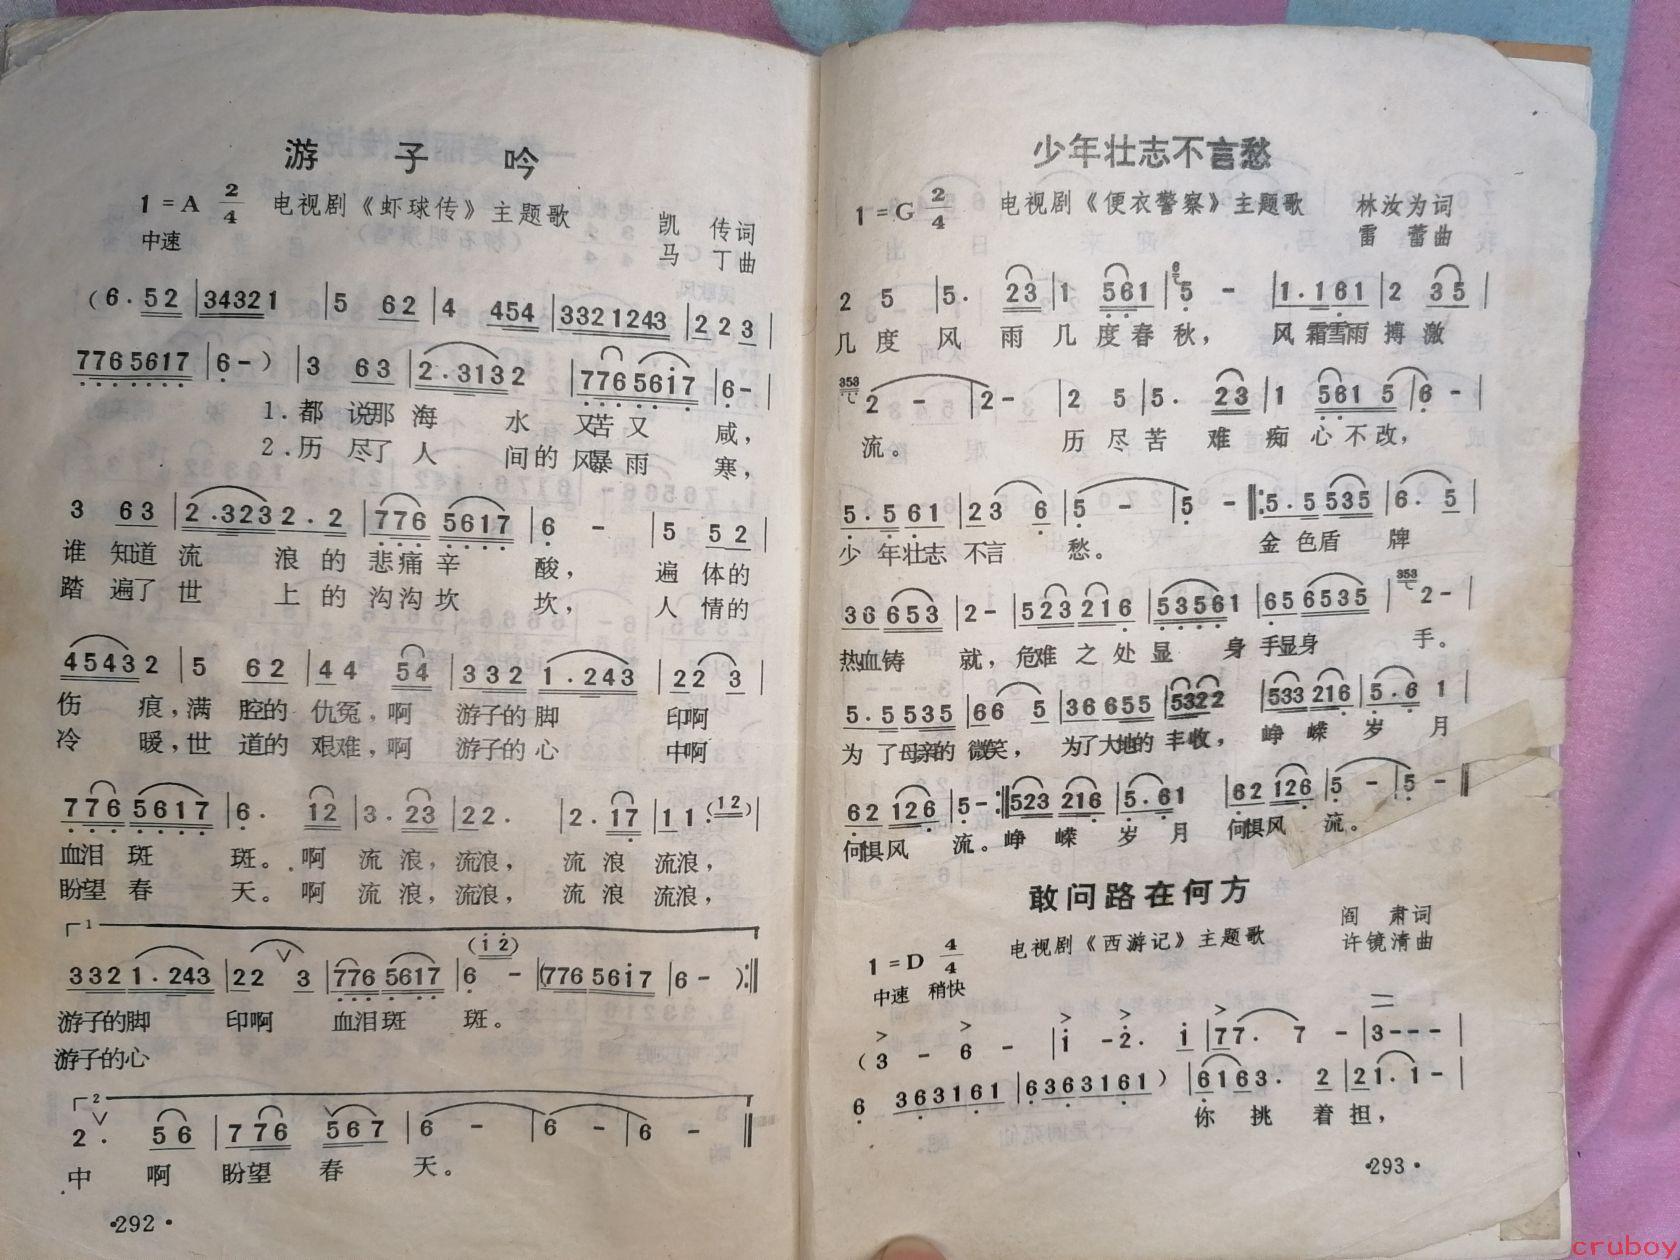 游子吟
1=A 2/4 电视剧《虾球传》主题歌 凯传词
中速 马丁曲
(6·52|34321|5 62|4 454|3321243|223|
7765617|6-)|3 63|2·3132|77656i7|6-|
1.都说那海水又苦又咸，
2.历尽了人间的风暴雨寒，
3 63|2·3232·2|7765617|6 -|5 52|
谁知道流浪的悲痛辛酸，遍体的
踏遍了世上的沟沟坎坎，人情的
45432|5 62|44 54|3321·243|223|
伤痕，满腔的仇冤，啊游子的脚印啊
冷暖，世道的艰难，啊游子的心中啊
7765617|6· 12|3·23|22·|2·17|11·(12)|
血泪斑斑。啊流浪，流浪，流浪流浪，
盼望春天。啊流浪，流浪，流浪流浪，
1
(i2)
3321·243|22 3|7765617|6 -|(77656i7|6-):‖
游子的脚印啊血泪斑斑。
游子的心
2
2· 56|7 76|567|6 -|6 -|6 -‖
中啊盼望春天。
·292·
少年壮志不言愁
1=G 2/4 电视剧《便衣警察》主题歌 林汝为词
雷蕾曲
2 5|5· 23|1 561|6 5 -|1·161|2 35|
几度风雨几度春秋，风霜雪雨搏激
353 2 -|2-|2 5|5· 23|1 5615|6 -|
流。历尽苦难痴心不改，
5·561|23 6|5 -|5 -‖:5·5535|6·5|
少年壮志不言愁。金色盾牌
36653|2-|523216|53561|656535|353 2-|
热血铸就，危难之处显身手显身手。
5·5535|66 5|36655|5322|533216|5·6 1|
为了母亲的微笑，为了大地的丰收，峥嵘岁月
62126|5-:‖523216|5·61|62126|5 -|5 -‖
何惧风流。峥嵘岁月何惧风流。
敢问路在何方
1=D 4/4 电视剧《西游记》主题歌 阎肃词
中速 稍快 许镜清曲
(3 - 6 -|i -2· i|77· 7 -|3---|
6 363161|6363161)|6163· 2|21·1-|
你挑着担，
·293·
cruboy